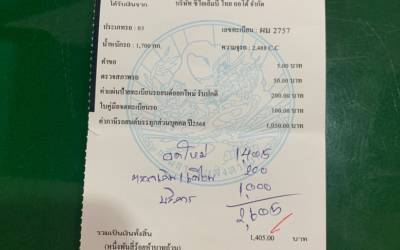 ได้รับเงินจาก บริษัท ซีไอเอ็มบี ไทย ออโต้ จำกัด
ประเภทรถ : 03 เลขทะเบียน : ผม 2757
น้ำหนักรถ : 1,700 กก. ความจุรถ : 2,488 C.C
ค่าขอ 5.00 บาท
ตรวจสภาพรถ 50.00 บาท
ค่าแผ่นป้ายทะเบียนรถยนต์ออกใหม่ รับปกติ 200.00 บาท
ใบคู่มือจดทะเบียนรถ 100.00 บาท
ค่าภาษีรถยนต์บรรทุกส่วนบุคคล ปี2568 1,050.00 บาท
จดใหม่ 1,405
200
บริการ 1,000
2,605
รวมเป็นเงินทั้งสิ้น 1,405.00 บาท
(หนึ่งพันสี่ร้อยห้าบาทถ้วน)